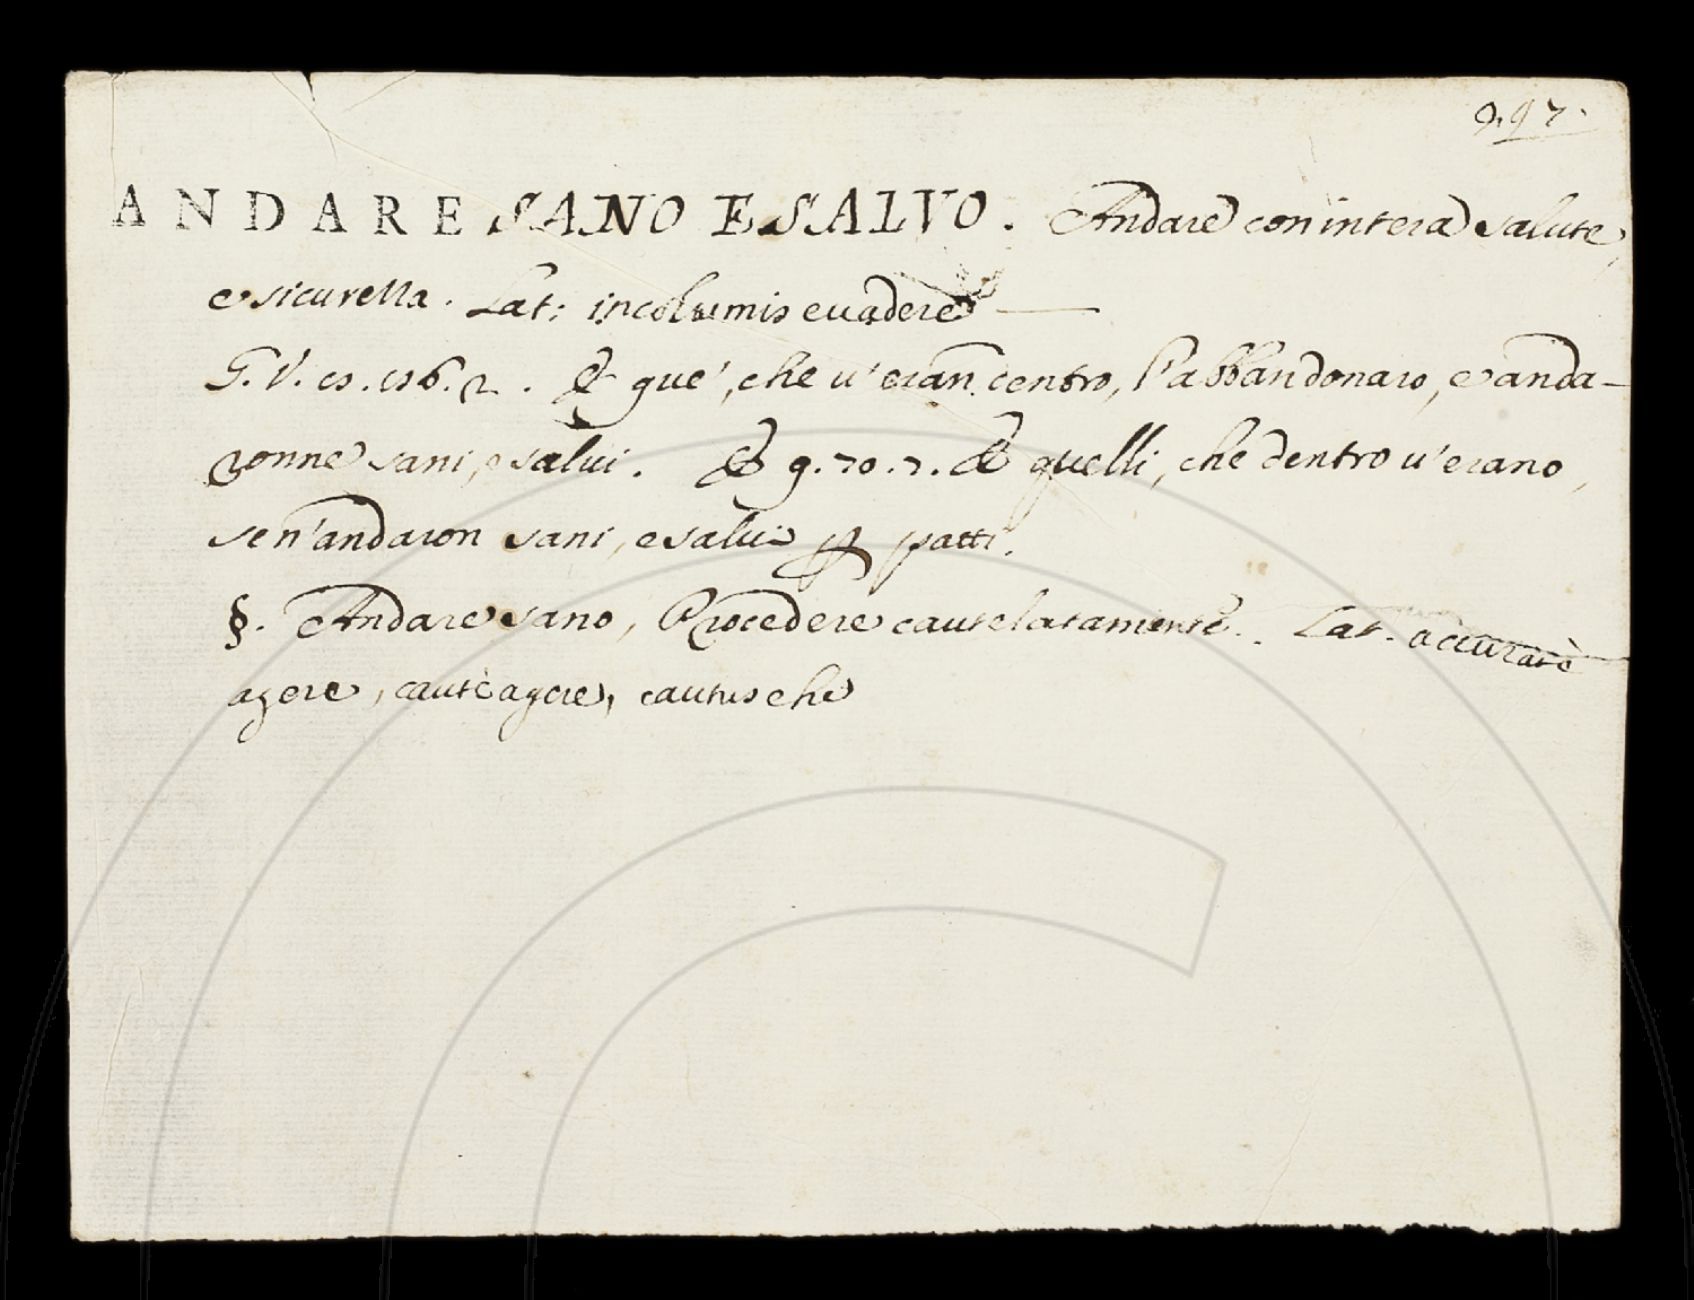 297.
ANDARE SANO E SALVO. Andare con intera salute,
e sicurezza. Lat: incolumis evadere
G. V. 
 . Et que', che v'eran dentro, l'abbandonaro, e anda-
ronne sani, e salvi. Et 9. 70. 2. Et quelli, che dentro v'erano,
se n'andaron sani, e salvi p patti.
§. Andare sano, Procedere cautelatamente. Lat. accuratè
agere, cautè agere,